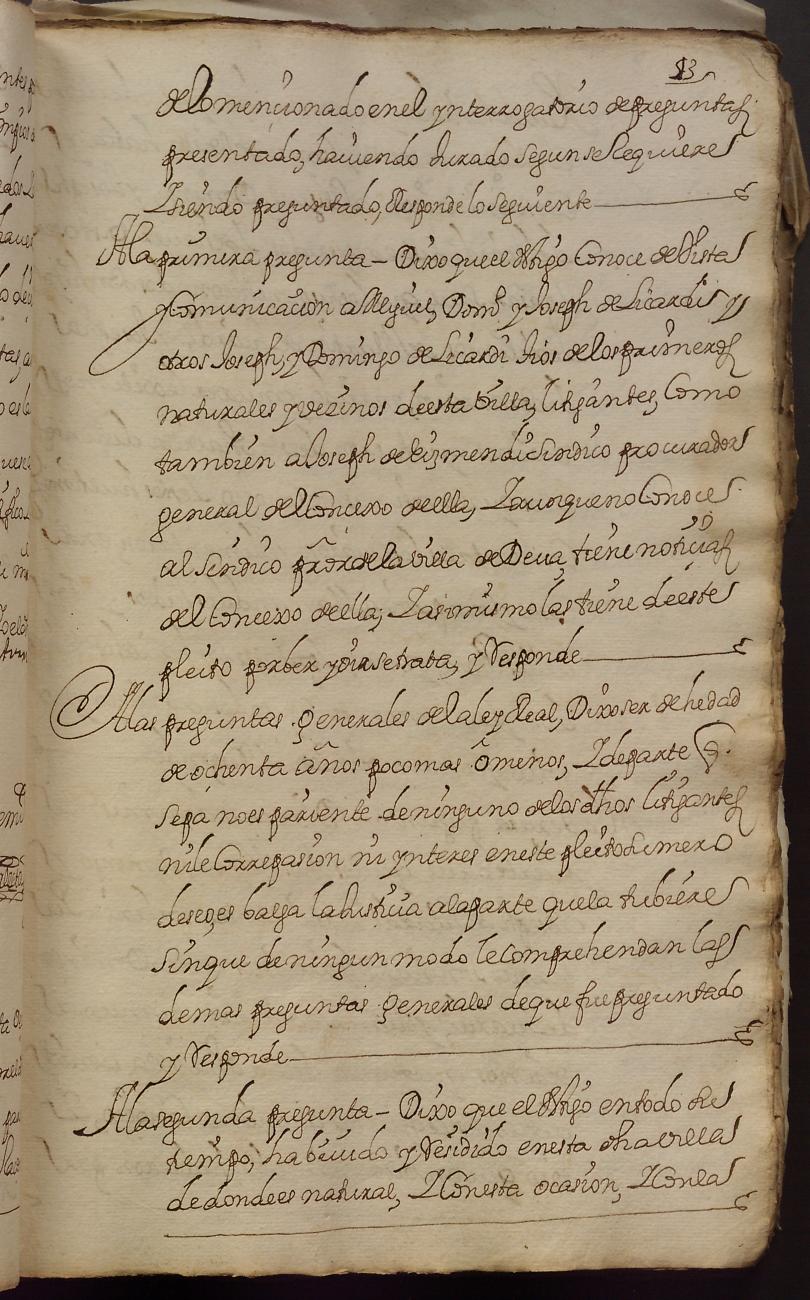 13
de lo mencionado en el ynterrogatorio de preguntas
presentado, haviendo Jurado segun se Requiere
Y siendo preguntado, Responde lo seguiente
A la primera pregunta - Dixo que el thigo Conoce de Vista
y Comunicacion a Miguel, Domº y Joseph de Licardi y
otros Joseph, y Domingo de Licardi hijos de los primeros
naturales y vezinos de esta villa, litigantes, Como
tambien a Joseph de Lizmendi Sindico procurador
general del Concexo de ella, Y aunque no Conoce
al Sindico prõr de la villa de Deva, tiene noticias
del Concexo de ella; Y asimismo las tiene de este
pleito por ber y oir se trata, y Responde
A las preguntas generales de la ley Real, Dixo ser de hedad
de ochenta años poco mas ô menos, Y de parte q.
sepa no es pariente de ninguno de los dhos litigantes
ni le Corre pasion ni ynteres en este pleito Si mero
deseo, es balga la Justicia a la parte que la tubiere
sin que de ningun modo le comprehendan las
demas preguntas generales de que fue preguntado
y Responde
A la segunda pregunta - Dixo que el thigo en todo su
tiempo, ha bivido y Residido en esta dha villa
de donde es natural, Y Con esta ocasion, Y Con la